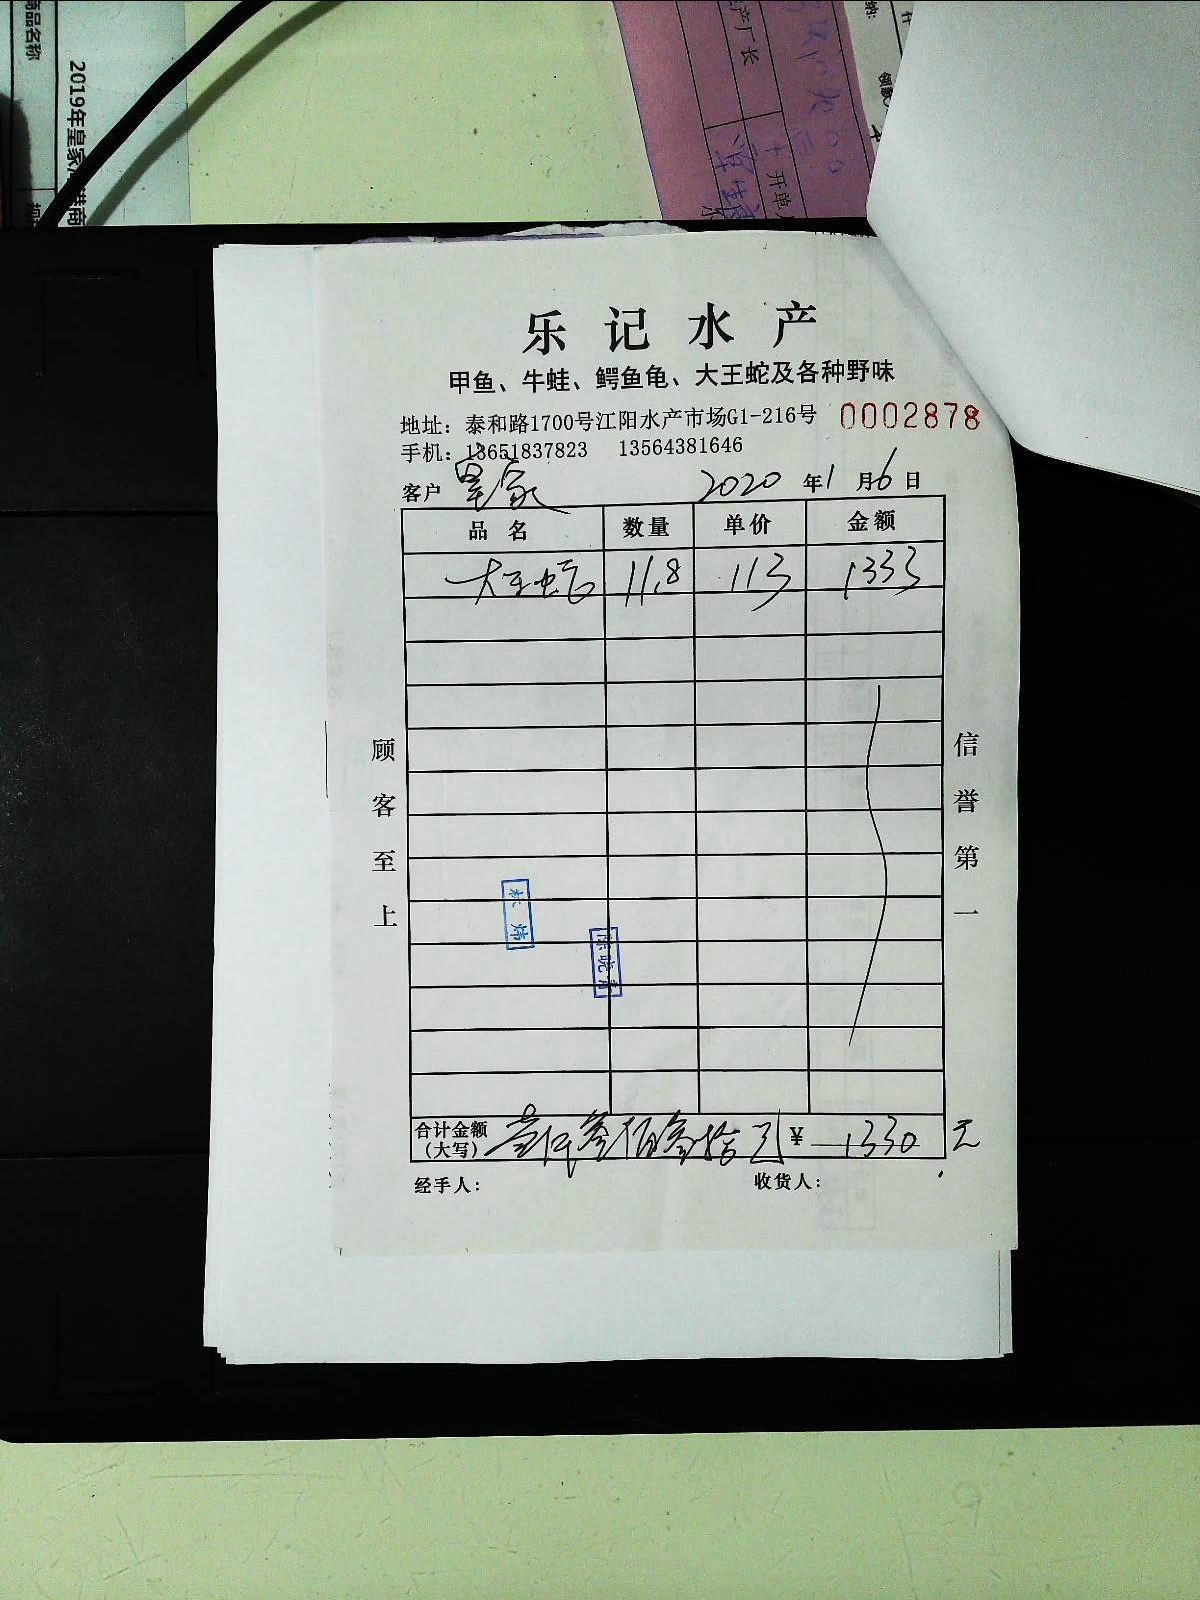 商品名称
2019年皇家
产厂长
开单人
乐记水产
甲鱼、牛蛙、鳄鱼龟、大王蛇及各种野味
地址：泰和路1700号江阳水产市场G1-216号 0002878
手机：13651837823 13564381646
客户 皇家 2020 年 1 月 6 日
品名 数量 单价 金额
大王蛇 11.8 113 1333
顾客至上
信誉第一
林炜
陈晓青
合计金额（大写） 壹仟叁佰叁拾 ¥ 1330 元
经手人： 收货人：